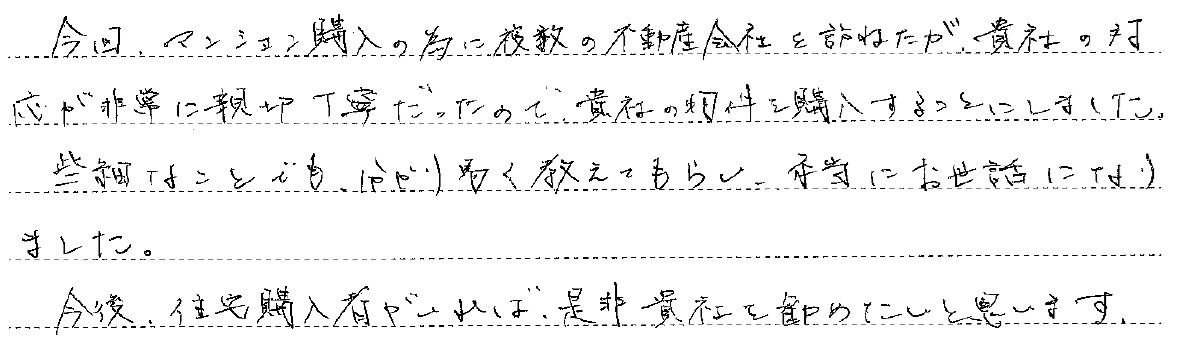 今回、マンション購入の為に複数の不動産会社を訪ねたが、貴社の対
応が非常に親切丁寧だったので、貴社の物件を購入することにしました。
些細なことでも、分かり易く教えてもらい、本当にお世話になり
ました。
今後、住宅購入者がいれば、是非貴社を勧めたいと思います。